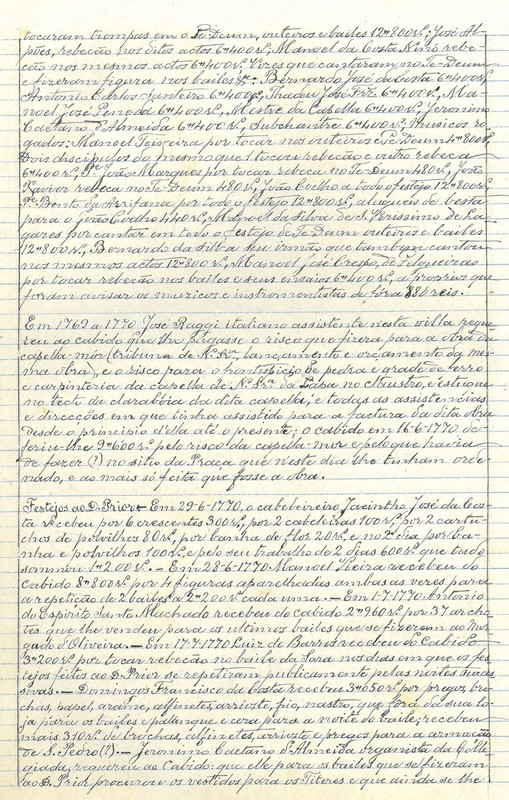 tocaram trompas em o Te Deum, outeiros e bailes 12#800rs; José Al-
pões, rebecão nos ditos actos 6#400rs, Manoel da Costa Nino rebe-
cão nos mesmos actos 6#400rs. Vozes que cantaram no Te-Deum
e fizeram figura nos bailes &ª - Bernardo José da Costa 6#400rs,
Antonio Carlos Santeiro 6#400rs, Thadeu José Frz 6#400rs, Ma-
noel José Peneda 6#400rs, Mestre da Capella 6#400rs, Jeronimo
Caetano d'Almeida 6#400rs, Subchantre 6#400rs, Musicos ro-
gados: Manoel Teixeira por tocar nos outeiros e Te Deum 4#800rs,
Dois discipulos do mesmo que 1 tocou rebecão e outro rebeca
6#400rs, Pe João Marques por tocar rebeca no Te-Deum 480rs, João
Xavier rebeca no Te-Deum 480rs, João Coelho a todo o festejo 12#800rs,
Pe Bento da Arrifana por todo o festejo 12#800rs, alugueis de besta
para o João Coelho 440rs, Manoel da Silva de S. Verissimo de La-
gares por cantar em todo o festejo de Te-Deum outeiros e bailes
12#800rs, Bernardo da Silva seu irmão que tambem cantou
nos mesmos actos 12#800rs, Manoel José Crespo, de Felgueiras
por tocar rebecão nos bailes e seus ensaios 6#400rs, a proprios que
foram avisar os muzicos e instromentistas de fóra 880 reis.
Em 1769 a 1770 José Raggi italiano assistente nesta villa reque-
reu ao cabido que lhe pagasse o risco que fizera para a obra da
capella-mór (tribuna de N. Srª, lançamento e orçamento da mes-
ma obra), e o risco para o frontispicio de pedra e grade de ferro
e carpinteria da capella de N. Srª da Lapa no Claustro, e estuque
no tecto da claraboia da dita capella, e todas as assistencias
e direcções em que tinha assistido para a factura da dita obra
desde o principio d'ella até o presente; o cabido em 16-6-1770 de-
feriu-lhe 9#600rs pelo risco da capella-mór e pelo que havia
de fazer (?) no sitio da Praça que n'este dia lhe tinham orde-
nado, e ao mais só feita que fosse a obra.
Festejos ao D. Prior - Em 29-6-1770, o cabeleireiro Jacintho José da Cos-
ta recebeu por 6 crescentes 300rs, por 2 cabeleiras 100rs, por 2 cartu-
chos de polvilhos 80rs, por banha de flor 20rs, e no 2º dia por ba-
nha e polvilhos 100rs, e pelo seu trabalho de 2 dias 600rs que tudo
sommou 1#200rs. - Em 28-6-1770 Manoel Vieira recebeu do
Cabido 8#800rs por 4 figuras aparelhadas ambas as vezes para
a repetição de 2 bailes a 2#200rs cada uma. - Em 1-7-1770 Antonio
do Espirito Santo Machado recebeu do cabido 2#960rs por 37 archo-
tes que lhe vendeu para os ultimos bailes que se fizeram ao Mor-
gado d'Oliveira. - Em 17-7-1770 Luiz de Barros recebeu do Cabido
3#200rs por tocar rebecão no baile da Sara nos dias em que os fes-
tejos feitos ao D. Prior se repetiram publicamente pelas noites succes-
sivas. - Domingos Francisco da Costa recebeu 3#050rs por pregos, bro-
chas, papel, arame, alfinetes, arrioste, fio, nastro, que foi da sua lo-
ja para os bailes e palanque e cera para a noite do baile; recebeu
mais 310rs de brochas, alfinetes, arrioste e pregos para a armação
de S. Pedro (?). - Jeronimo Caetano d'Almeida organista da Colle-
giada, requereu ao Cabido: que elle para os bailes que se fizeram
ao D. Prior procurou os vestidos para os Titeres e que ainda se lhe